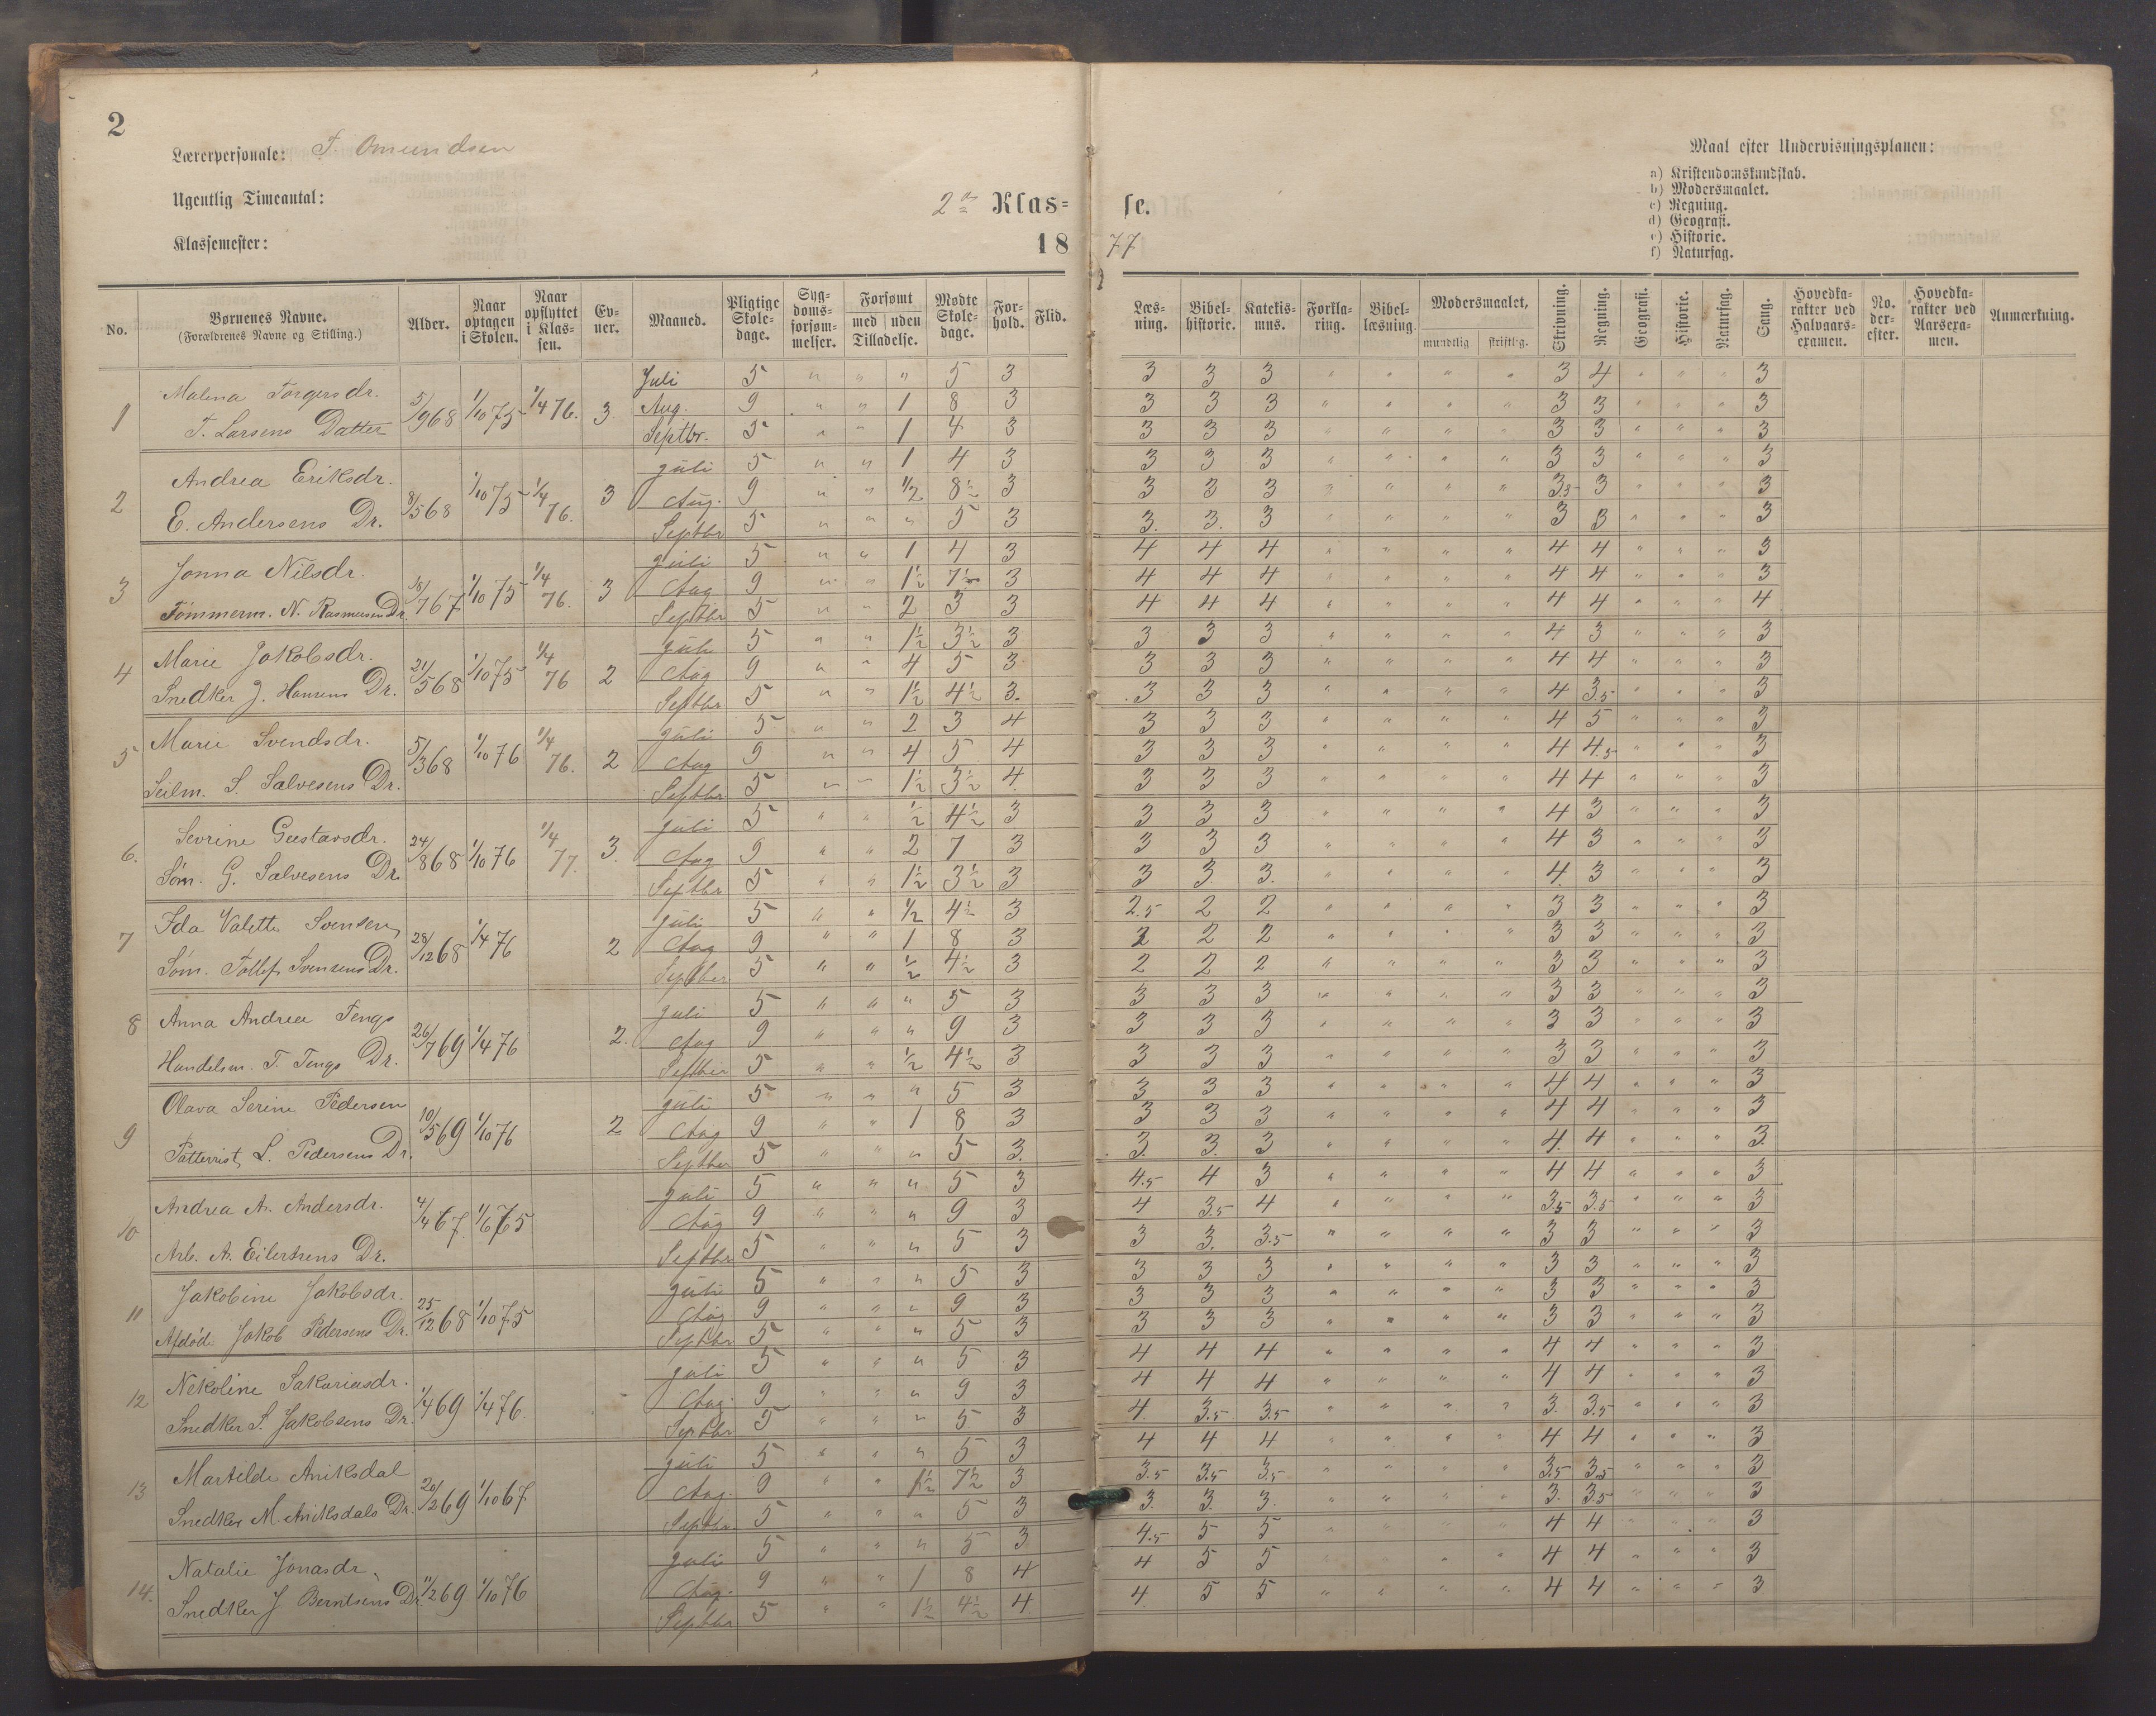 2
Lærerpersonale: T. Omundsen
Ugentlig Timeantal:
Klassemester:
2den Klas=
se.
18
77
Maal efter Undervisningsplanen:
a) Kristendomskundskab.
b) Modersmaalet.
c) Regning.
d) Geografi.
e) Historie.
f) Naturfag.
No. | Børnenes Navne. (Forældrenes Navne og Stilling.) | Alder. | Naar optagen i Skolen. | Naar opflyttet i Klassen. | Evner. | Maaned. | Pligtige Skoledage. | Sygdomsforsømmelser. | Forsømt med uden Tilladelse. | Mødte Skoledage. | Forhold. | Flid. | Læsning. | Bibelhistorie. | Katekismus. | Forklaring. | Bibellæsning. | Modersmaalet, mundtlig skriftlig. | Skrivning. | Regning. | Geografi. | Historie. | Naturfag. | Sang. | Hovedkarakter ved Halvaarsexamen. | No. derefter. | Hovedkarakter ved Aarsexamen. | Anmærkning.
1 Malena Torgersdr. 5/9 68 1/10 75 1/4 76. 3
T. Larsens Datter
Juli 5 " " " 5 3 3 3 3 " " " " 3 4 " " " 3
Aug. 9 " " 1 8 3 3 3 3 " " " " 3 3 " " " 3
Septbr. 5 " " 1 4 3 3 3 3 " " " " 3 3 " " " 3
2 Andrea Eriksdr. 8/5 68 1/10 75 1/4 76. 3
E. Andersens Dr.
Juli 5 " " 1 4 3 3 3 3 " " " " 3 3 " " " 3
Aug. 9 " " 1/2 8 1/2 3 3 3 3 " " " " 3.5 3 " " " 3
Septbr 5 " " " 5 3 3. 3. 3 " " " " 3 3 " " " 3
3 Jonna Nilsdr. 18/7 67 1/10 75 1/4 76. 3
Tømmerm. N. Rasmussens Dr.
Juli 5 " " 1 4 3 4 4 4 " " " " 4 4 " " " 3
Aug 9 " " 1 1/2 7 1/2 3 4 4 4 " " " " 4 4 " " " 3
Septbr 5 " " 2 3 3 4 4 4 " " " " 4 4 " " " 4
4 Marie Jakobsdr. 21/5 68 1/10 75 1/4 76 2
Snedker J. Hansens Dr.
Juli 5 " " 1 1/2 3 1/2 3 3 3 3 " " " " 4 3 " " " 3
Aug 9 " " 4 5 3 3 3 3 " " " " 4 4 " " " 3
Septbr 5 " " 1 1/2 4 1/2 3. 3 3 3 " " " " 4 3.5 " " " 3
5 Marie Svendsdr. 5/3 68 1/10 76 1/4 76. 2
Seilm. S. Salvesens Dr.
Juli 5 " " 2 3 4 3 3 3 " " " " 4 5 " " " 3
Aug 9 " " 4 5 4 3 3 3 " " " " 4 4.5 " " " 3
Septbr 5 " " 1 1/2 3 1/2 4. 3 3 3 " " " " 4 4 " " " 3
6. Sevrine Gustavsdr. 24/8 68 1/10 76 1/4 77. 3.
Søm. G. Salvesens Dr.
Juli 5 " " 1/2 4 1/2 3 3 3 3 " " " " 4 3 " " " 3
Aug 9 " " 2 7 3 3 3 3 " " " " 4 3 " " " 3
Septbr 5 " " 1 1/2 3 1/2 3 3 3. 3. " " " " 4. 3 " " " 3
7 Ida Valette Svensen 28/12 68 1/4 76 2
Søm. Tollef Svensens Dr.
Juli 5 " " 1/2 4 1/2 3 2.5 2 2 " " " " 3 3 " " " 3
Aug 9 " " 1 8 3 2 2 2 " " " " 3 3 " " " 3
Septber 5 " " 1/2 4 1/2 3 2 2 2 " " " " 3 3 " " " 3
8 Anna Andrea Tengs 26/7 69 1/4 76 2.
Handelsm. T. Tengs Dr.
Juli 5 " " " 5 3 3 3 3 " " " " 3 3 " " " 3
Aug 9 " " " 9 3 3 3 3 " " " " 3 3 " " " 3
Septber 5 " " 1/2 4 1/2 3 3 3 3 " " " " 3 3 " " " 3
9 Olava Serine Pedersen 10/5 69 1/10 76 2
L. Pedersens Dr.
Juli 5 " " " 5 3 3 3 3 " " " " 4 4 " " " 3
Aug 9 " " 1 8 3 3 3 3 " " " " 4 4 " " " 3
Septber 5 " " " 5 3. 3. 3. 3 " " " " 4. 4 " " " 3.
10 Andrea A. Andersdr. 4/4 67. 1/6 75
Arb. A. Eilertsens Dr.
Juli 5 " " " 5 3 4.5 4 3 " " " " 4 4 " " " 3
Aug 9 " " " 9 3 4 3.5 4 " " " " 3.5 3.5 " " " 3
Septbr 5 " " " 5 3 3 3. 3.5 " " " " 3 3 " " " 3
11 Jakobine Jakobsdr. 25/12 68 1/10 75
Afdød Jakob Pedersens Dr.
Juli 5 " " " 5 3 3 3 3 " " " " 3 3 " " " 3
Aug 9 " " " 9 3 3 3 3 " " " " 3 3 " " " 3
Septbr 5 " " " 5 3 3 3 3 " " " " 3 3 " " " 3
12 Nekoline Sakariasdr. 1/4 69 1/4 76
Snedker S. Jakobsens Dr.
Juli 5 " " " 5 3 4 4 4 " " " " 4 4 " " " 3
Aug. 9 " " " 9 3 4 4 4 " " " " 4 4 " " " 3
Septbr 5 " " " 5 3 4. 3.5 3.5 " " " " 3. 3.5 " " " 3
13 Martilde Aniksdal 20/2 69 1/10 67
Snedker M. Aniksdals Dr.
Juli 5 " " " 5 3 4 4 4 " " " " 4 4 " " " 3
Aug. 9 " " 1 1/2 7 1/2 3 3.5 3.5 3.5 " " " " 3.5 3.5 " " " 3
Septbr. 5 " " " 5 3 3. 3. 3. " " " " 3. 3.5 " " " 3
14. Natalie Jonasdr. 11/2 69 1/10 76
Snedker J Berntsens Dr.
Juli 5 " " " 5 3 4.5 5 5 " " " " 4 4 " " " 3
Aug. 9 " " 1 8 4 4 5 5 " " " " 4 4 " " " 3
Septbr 5 " " 1 1/2 4 1/2 4. 4. 5 5 " " " " 4 4 " " " 3